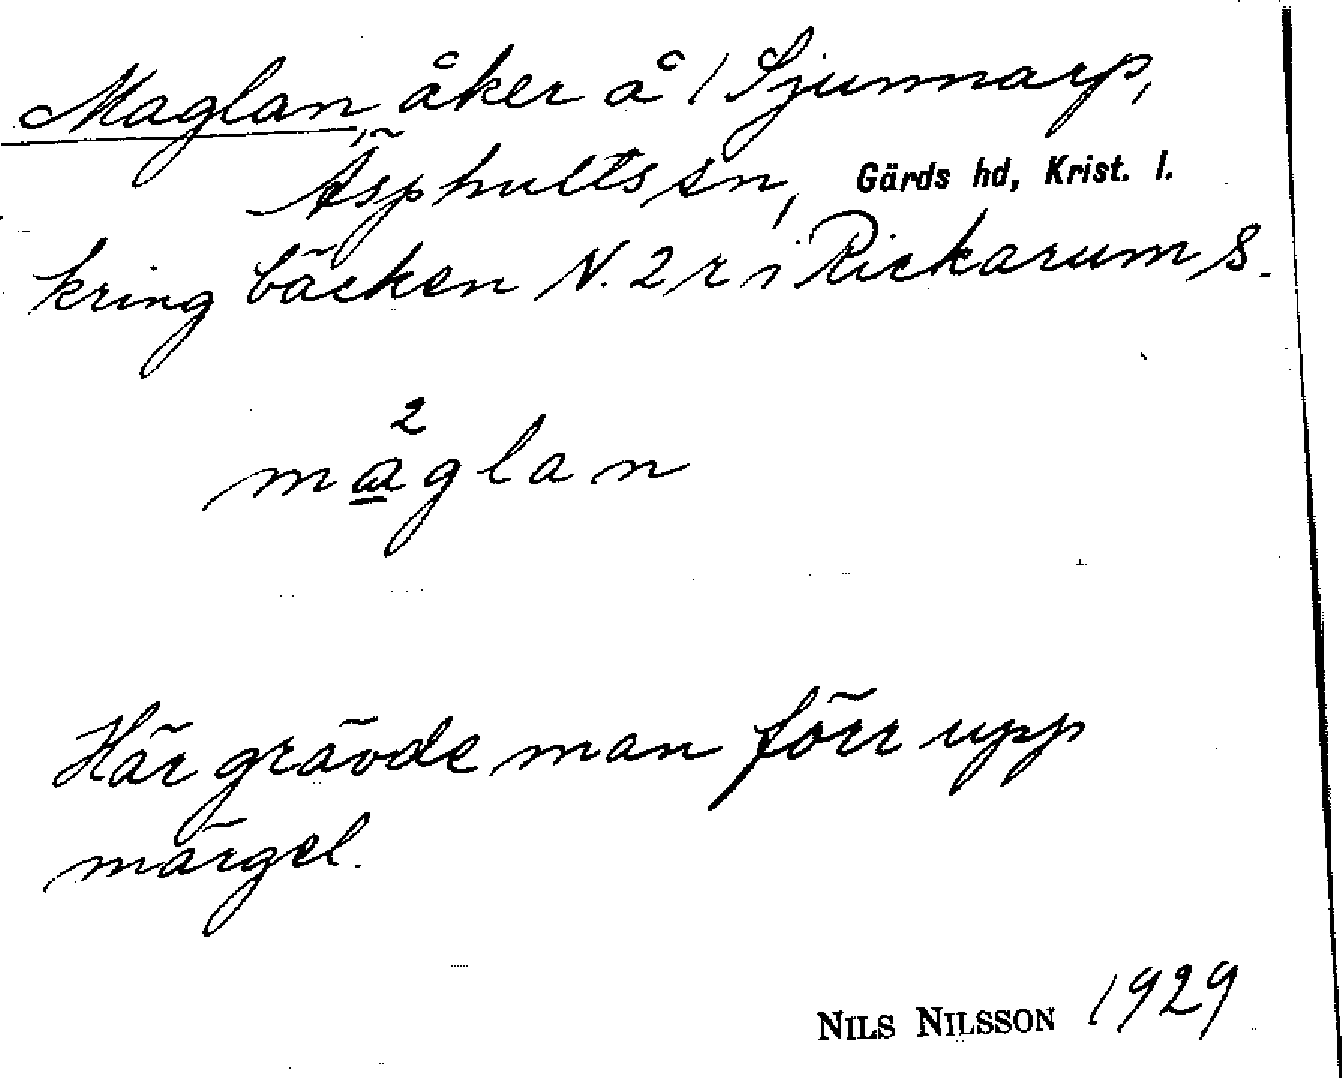 Maglan, åker å 1 Sjunnarp,
Äsphults sn, Gärds hd, Krist. l.
kring bäcken N. 2 r i Rickarum s.
2
maglan
Här grävde man förr upp
märgel.
NILS NILSSON 1929